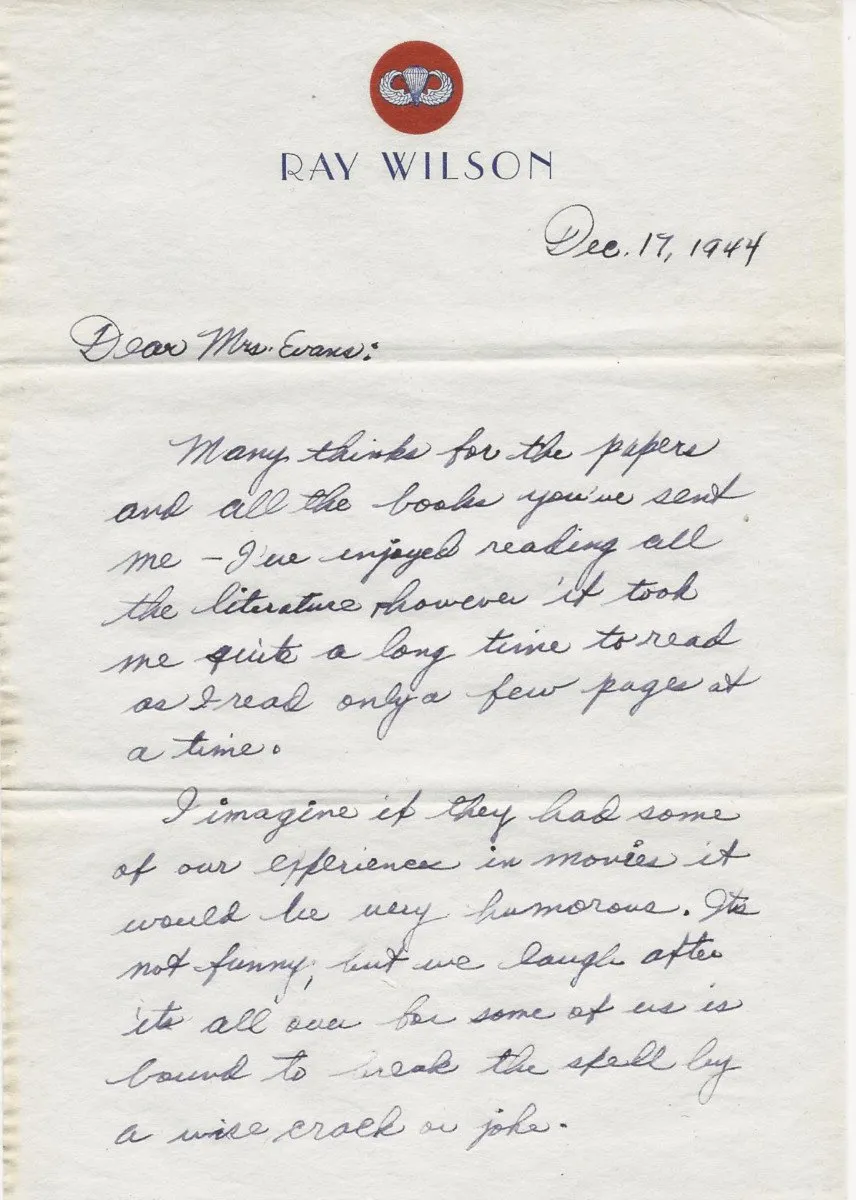 RAY WILSON
Dec. 17, 1944
Dear Mrs. Evans:
Many thinks for the papers
and all the books you've sent
me - I've enjoyed reading all
the literature, however it took
me quite a long time to read
as I read only a few pages at
a time.
I imagine if they had some
of our experiences in movies it
would be very humorous. Its
not funny, but we laugh after
its all over for some of us is
bound to break the spell by
a wise crack or joke.